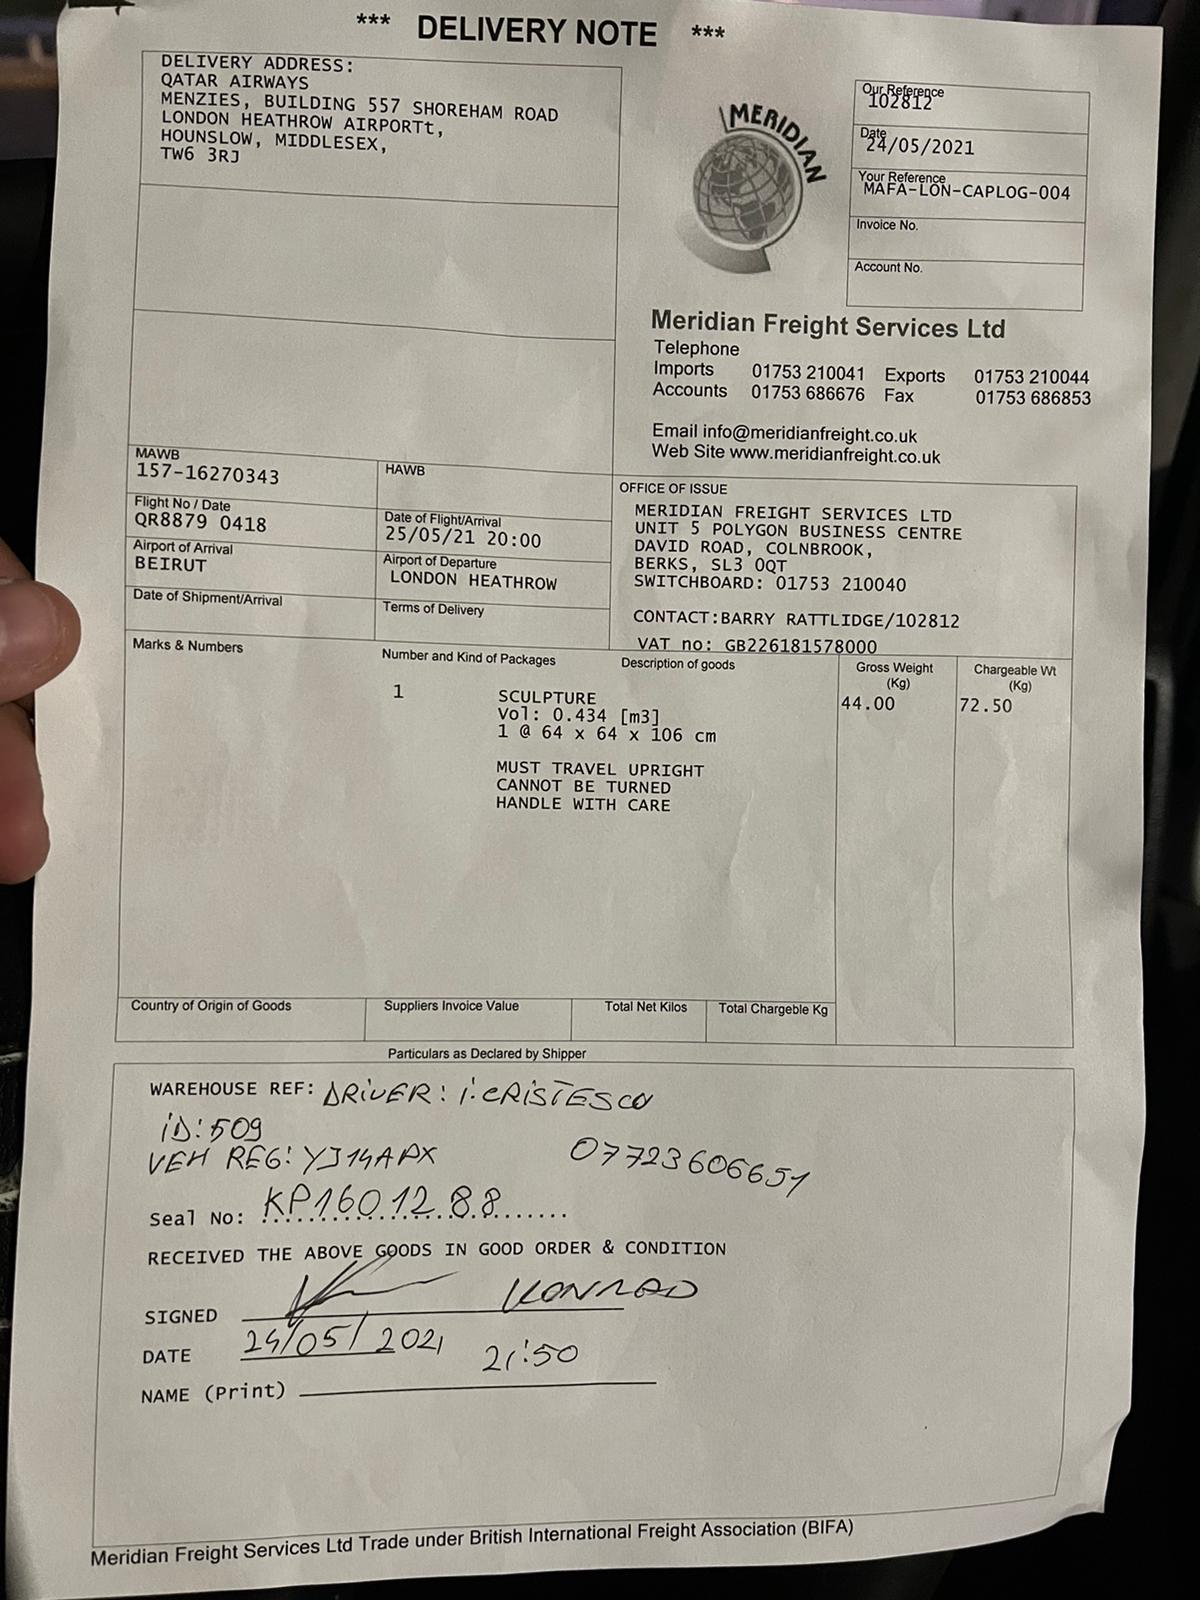 *** DELIVERY NOTE ***
DELIVERY ADDRESS:
QATAR AIRWAYS
MENZIES, BUILDING 557 SHOREHAM ROAD
LONDON HEATHROW AIRPORTt,
HOUNSLOW, MIDDLESEX,
TW6 3RJ
MERIDIAN
Our Reference
102812
Date
24/05/2021
Your Reference
MAFA-LON-CAPLOG-004
Invoice No.
Account No.
Meridian Freight Services Ltd
Telephone
Imports 01753 210041 Exports 01753 210044
Accounts 01753 686676 Fax 01753 686853
Email info@meridianfreight.co.uk
Web Site www.meridianfreight.co.uk
MAWB
157-16270343
HAWB
Flight No / Date
QR8879 0418
Date of Flight/Arrival
25/05/21 20:00
Airport of Arrival
BEIRUT
Airport of Departure
LONDON HEATHROW
Date of Shipment/Arrival
Terms of Delivery
OFFICE OF ISSUE
MERIDIAN FREIGHT SERVICES LTD
UNIT 5 POLYGON BUSINESS CENTRE
DAVID ROAD, COLNBROOK,
BERKS, SL3 0QT
SWITCHBOARD: 01753 210040
CONTACT:BARRY RATTLIDGE/102812
VAT no: GB226181578000
Marks & Numbers
Number and Kind of Packages
Description of goods
Gross Weight
(Kg)
Chargeable Wt
(Kg)
1
SCULPTURE
Vol: 0.434 [m3]
1 @ 64 x 64 x 106 cm
44.00
72.50
MUST TRAVEL UPRIGHT
CANNOT BE TURNED
HANDLE WITH CARE
Country of Origin of Goods
Suppliers Invoice Value
Total Net Kilos
Total Chargeble Kg
Particulars as Declared by Shipper
WAREHOUSE REF: DRIVER: i.CRISTESCU
iD: 509
VEH REG: YJ14APX
07723606651
Seal No: KP1601288
RECEIVED THE ABOVE GOODS IN GOOD ORDER & CONDITION
SIGNED KONRAD
DATE 24/05/2021 21:50
NAME (Print)
Meridian Freight Services Ltd Trade under British International Freight Association (BIFA)